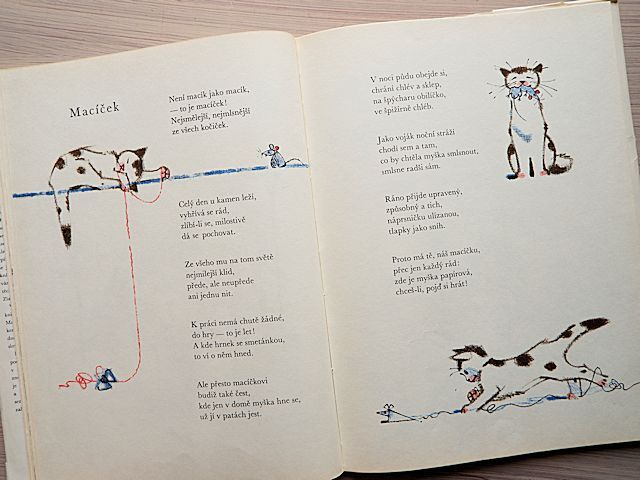 Macíček
Není macík jako macík,
— to je macíček!
Nejsmělejší, nejmlsnější
ze všech kočiček.
Celý den u kamen leží,
vyhřívá se rád,
zlíbí-li se, milostivě
dá se pochovat.
Ze všeho mu na tom světě
nejmilejší klid,
přede, ale neupřede
ani jednu nit.
K práci nemá chutě žádné,
do hry — to je let!
A kde hrnek se smetánkou,
to ví o něm hned.
Ale přesto macíčkovi
budiž také čest,
kde jen v domě myška hne se,
už jí v patách jest.
V noci půdu obejde si,
chrání chlév a sklep,
na špýcharu obilíčko,
ve spižírně chléb.
Jako voják noční stráží
chodí sem a tam,
co by chtěla myška smlsnout,
smlsne radši sám.
Ráno přijde upravený,
způsobný a tich,
náprsničku ulízanou,
tlapky jako sníh.
Proto má tě, náš macíčku,
přec jen každý rád:
zde je myška papírová,
chceš-li, pojď si hrát!